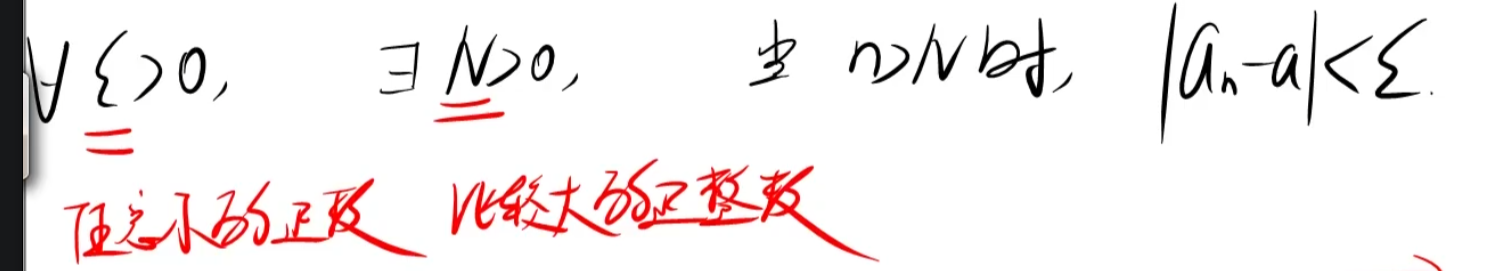 ∀ ε>0, ∃ N>0, 当 n>N 时, |aₙ-a|<ε.
任意小的正数 比较大的正整数